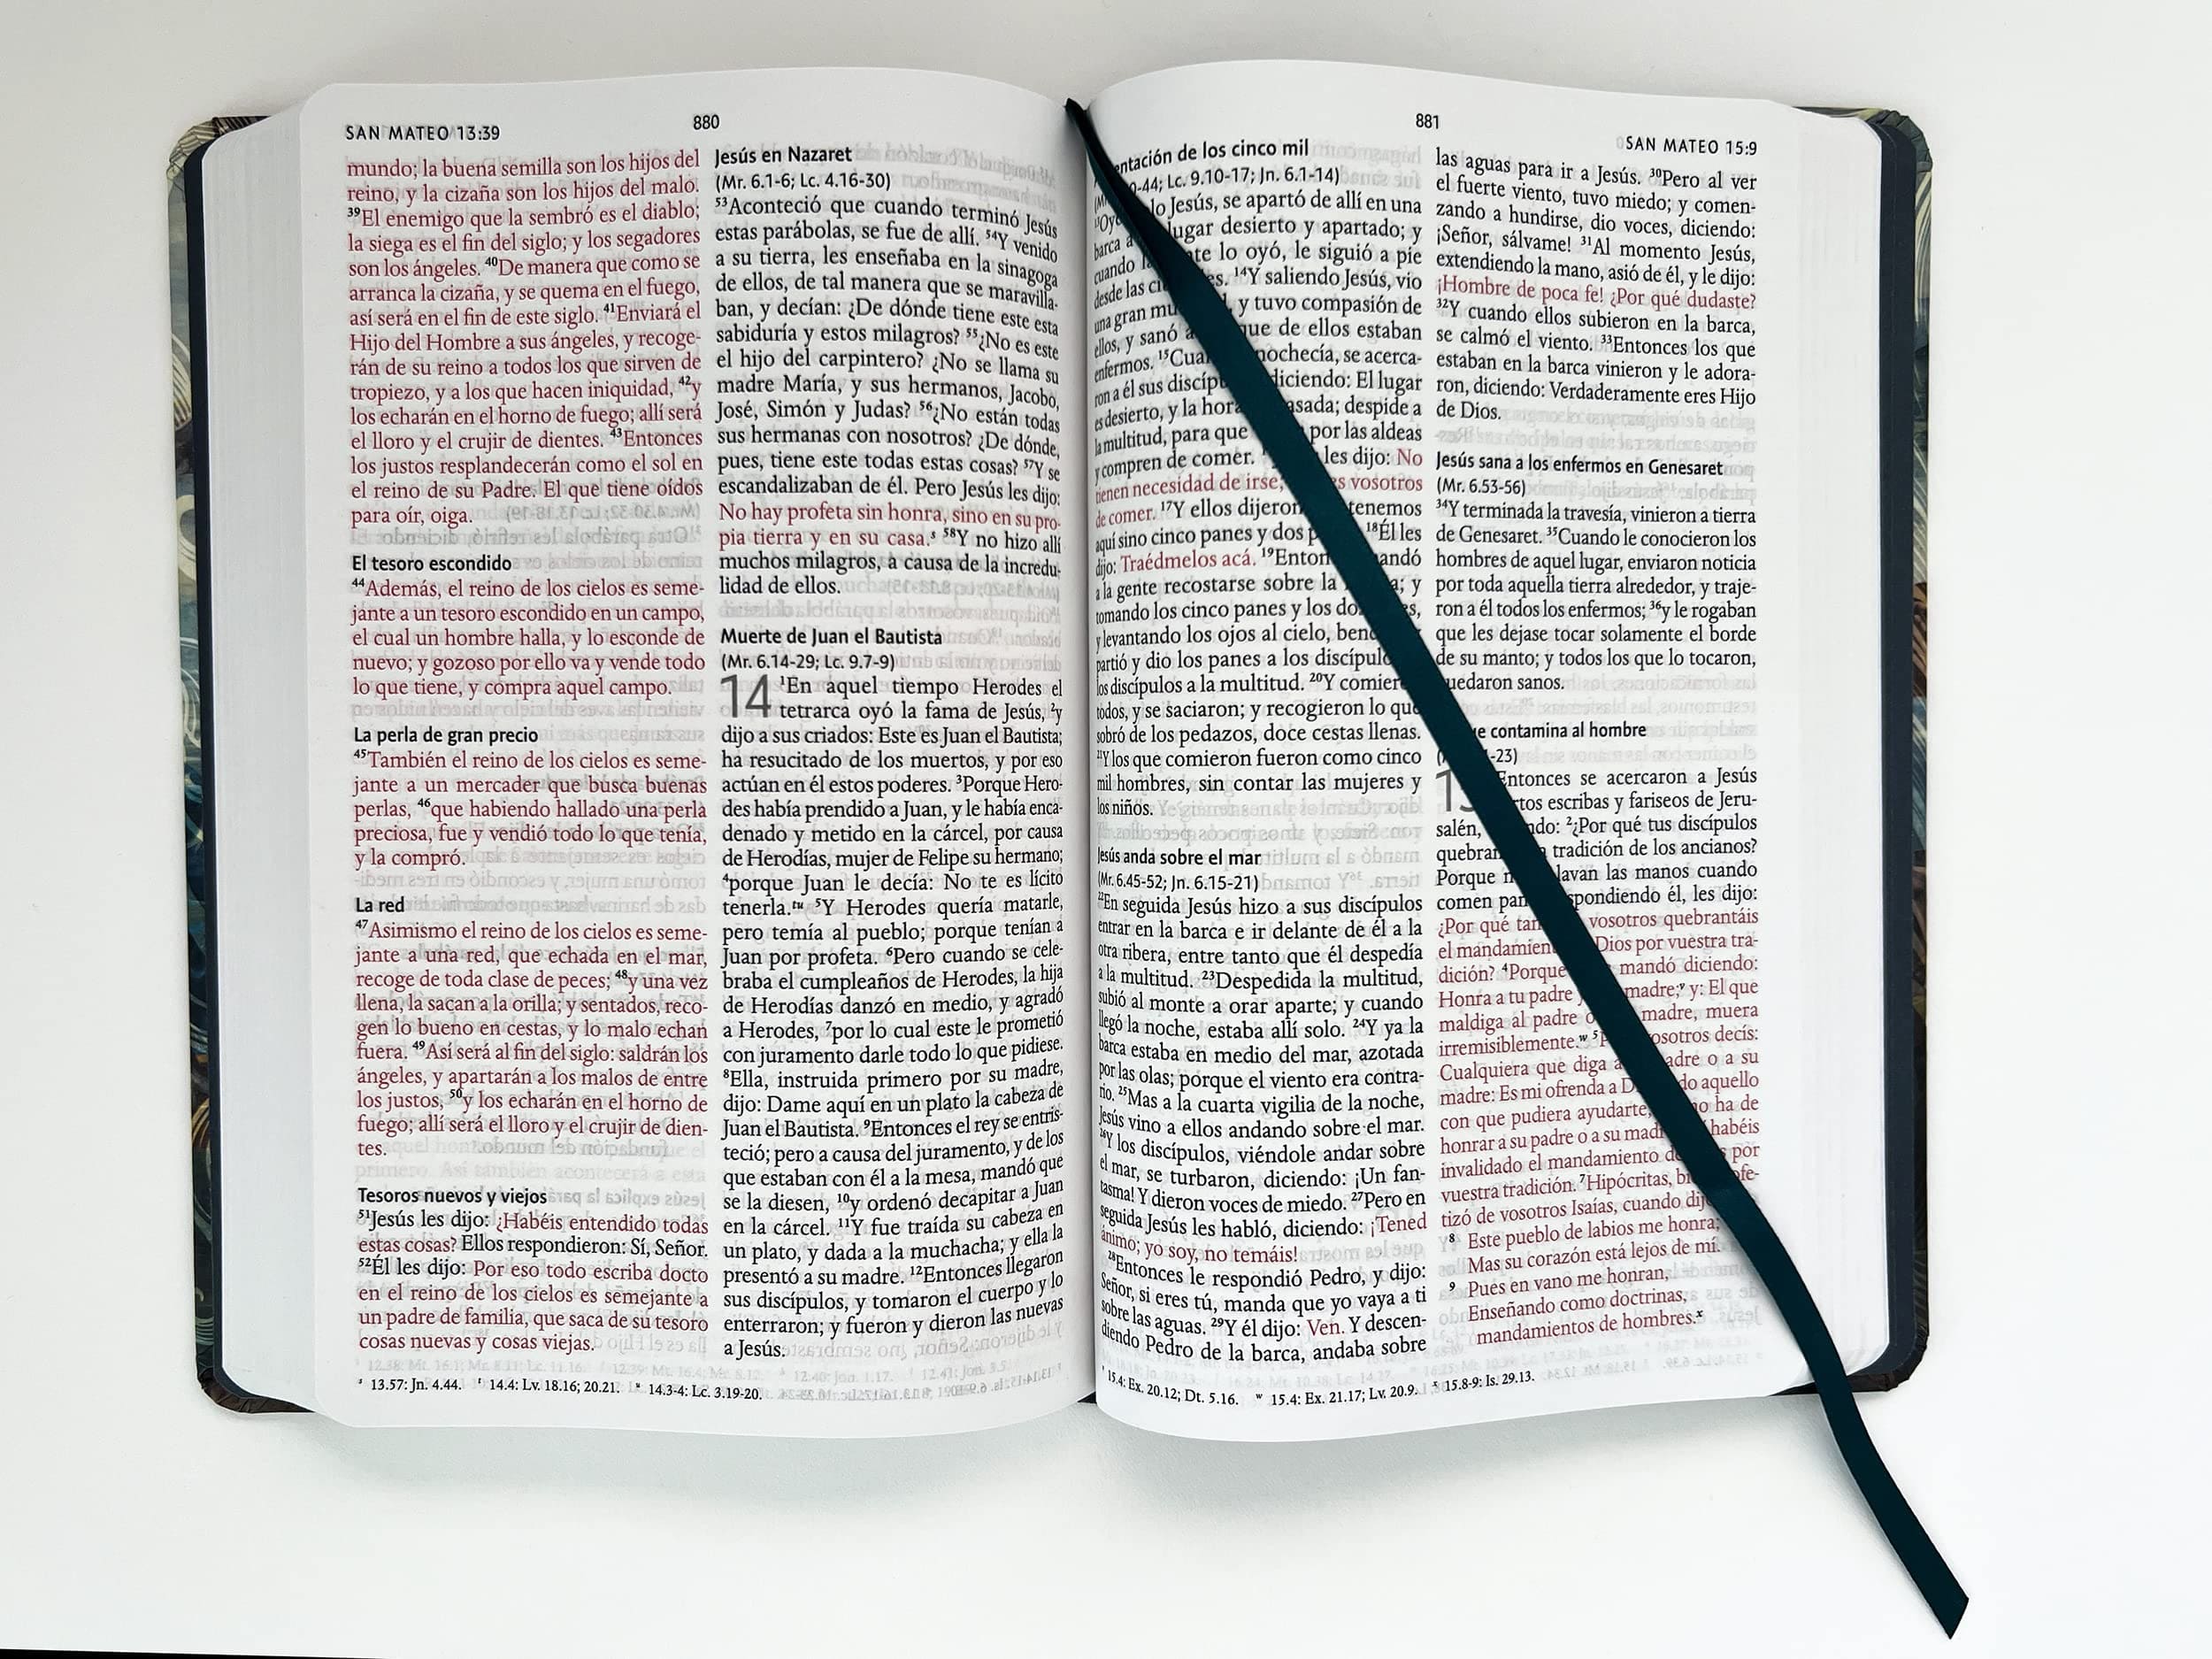 SAN MATEO 13:39
880
mundo; la buena semilla son los hijos del
reino, y la cizaña son los hijos del malo.
39El enemigo que la sembró es el diablo;
la siega es el fin del siglo; y los segadores
son los ángeles. 40De manera que como se
arranca la cizaña, y se quema en el fuego,
así será en el fin de este siglo. 41Enviará el
Hijo del Hombre a sus ángeles, y recoge-
rán de su reino a todos los que sirven de
tropiezo, y a los que hacen iniquidad, 42y
los echarán en el horno de fuego; allí será
el lloro y el crujir de dientes. 43Entonces
los justos resplandecerán como el sol en
el reino de su Padre. El que tiene oídos
para oír, oiga.
El tesoro escondido
44Además, el reino de los cielos es seme-
jante a un tesoro escondido en un campo,
el cual un hombre halla, y lo esconde de
nuevo; y gozoso por ello va y vende todo
lo que tiene, y compra aquel campo.
La perla de gran precio
45También el reino de los cielos es seme-
jante a un mercader que busca buenas
perlas, 46que habiendo hallado una perla
preciosa, fue y vendió todo lo que tenía,
y la compró.
La red
47Asimismo el reino de los cielos es seme-
jante a una red, que echada en el mar,
recoge de toda clase de peces; 48y una vez
llena, la sacan a la orilla; y sentados, reco-
gen lo bueno en cestas, y lo malo echan
fuera. 49Así será al fin del siglo: saldrán los
ángeles, y apartarán a los malos de entre
los justos, 50y los echarán en el horno de
fuego; allí será el lloro y el crujir de dien-
tes.
Tesoros nuevos y viejos
51Jesús les dijo: ¿Habéis entendido todas
estas cosas? Ellos respondieron: Sí, Señor.
52Él les dijo: Por eso todo escriba docto
en el reino de los cielos es semejante a
un padre de familia, que saca de su tesoro
cosas nuevas y cosas viejas.
Jesús en Nazaret
(Mr. 6.1-6; Lc. 4.16-30)
53Aconteció que cuando terminó Jesús
estas parábolas, se fue de allí. 54Y venido
a su tierra, les enseñaba en la sinagoga
de ellos, de tal manera que se maravilla-
ban, y decían: ¿De dónde tiene este esta
sabiduría y estos milagros? 55¿No es este
el hijo del carpintero? ¿No se llama su
madre María, y sus hermanos, Jacobo,
José, Simón y Judas? 56¿No están todas
sus hermanas con nosotros? ¿De dónde,
pues, tiene este todas estas cosas? 57Y se
escandalizaban de él. Pero Jesús les dijo:
No hay profeta sin honra, sino en su pro-
pia tierra y en su casa.s 58Y no hizo allí
muchos milagros, a causa de la incredu-
lidad de ellos.
Muerte de Juan el Bautista
(Mr. 6.14-29; Lc. 9.7-9)
14 1En aquel tiempo Herodes el
tetrarca oyó la fama de Jesús, 2y
dijo a sus criados: Este es Juan el Bautista;
ha resucitado de los muertos, y por eso
actúan en él estos poderes. 3Porque Hero-
des había prendido a Juan, y le había enca-
denado y metido en la cárcel, por causa
de Herodías, mujer de Felipe su hermano;
4porque Juan le decía: No te es lícito
tenerla.tu 5Y Herodes quería matarle,
pero temía al pueblo; porque tenían a
Juan por profeta. 6Pero cuando se cele-
braba el cumpleaños de Herodes, la hija
de Herodías danzó en medio, y agradó
a Herodes, 7por lo cual este le prometió
con juramento darle todo lo que pidiese.
8Ella, instruida primero por su madre,
dijo: Dame aquí en un plato la cabeza de
Juan el Bautista. 9Entonces el rey se entris-
teció; pero a causa del juramento, y de los
que estaban con él a la mesa, mandó que
se la diesen, 10y ordenó decapitar a Juan
en la cárcel. 11Y fue traída su cabeza en
un plato, y dada a la muchacha; y ella la
presentó a su madre. 12Entonces llegaron
sus discípulos, y tomaron el cuerpo y lo
enterraron; y fueron y dieron las nuevas
a Jesús.
s 13.57: Jn. 4.44. t 14.4: Lv. 18.16; 20.21. u 14.3-4: Lc. 3.19-20.
881
SAN MATEO 15:9
entación de los cinco mil
0-44; Lc. 9.10-17; Jn. 6.1-14)
lo Jesús, se apartó de allí en una
barca a lugar desierto y apartado; y
cuando la nte lo oyó, le siguió a pie
desde las ci es. 14Y saliendo Jesús, vio
una gran mu y tuvo compasión de
ellos, y sanó a que de ellos estaban
enfermos. 15Cuan nochecía, se acerca-
ron a él sus discíp diciendo: El lugar
es desierto, y la hora asada; despide a
la multitud, para que por las aldeas
y compren de comer. les dijo: No
tienen necesidad de irse; s vosotros
de comer. 17Y ellos dijeron tenemos
aquí sino cinco panes y dos p 18Él les
dijo: Traédmelos acá. 19Enton andó
a la gente recostarse sobre la a; y
tomando los cinco panes y los do es,
y levantando los ojos al cielo, bend
partió y dio los panes a los discípul
los discípulos a la multitud. 20Y comier
todos, y se saciaron; y recogieron lo que
sobró de los pedazos, doce cestas llenas.
21Y los que comieron fueron como cinco
mil hombres, sin contar las mujeres y
los niños.
Jesús anda sobre el mar
(Mr. 6.45-52; Jn. 6.15-21)
22En seguida Jesús hizo a sus discípulos
entrar en la barca e ir delante de él a la
otra ribera, entre tanto que él despedía
a la multitud. 23Despedida la multitud,
subió al monte a orar aparte; y cuando
llegó la noche, estaba allí solo. 24Y ya la
barca estaba en medio del mar, azotada
por las olas; porque el viento era contra-
rio. 25Mas a la cuarta vigilia de la noche,
Jesús vino a ellos andando sobre el mar.
26Y los discípulos, viéndole andar sobre
el mar, se turbaron, diciendo: ¡Un fan-
tasma! Y dieron voces de miedo. 27Pero en
seguida Jesús les habló, diciendo: ¡Tened
ánimo; yo soy, no temáis!
28Entonces le respondió Pedro, y dijo:
Señor, si eres tú, manda que yo vaya a ti
sobre las aguas. 29Y él dijo: Ven. Y descen-
diendo Pedro de la barca, andaba sobre
las aguas para ir a Jesús. 30Pero al ver
el fuerte viento, tuvo miedo; y comen-
zando a hundirse, dio voces, diciendo:
¡Señor, sálvame! 31Al momento Jesús,
extendiendo la mano, asió de él, y le dijo:
¡Hombre de poca fe! ¿Por qué dudaste?
32Y cuando ellos subieron en la barca,
se calmó el viento. 33Entonces los que
estaban en la barca vinieron y le adora-
ron, diciendo: Verdaderamente eres Hijo
de Dios.
Jesús sana a los enfermos en Genesaret
(Mr. 6.53-56)
34Y terminada la travesía, vinieron a tierra
de Genesaret. 35Cuando le conocieron los
hombres de aquel lugar, enviaron noticia
por toda aquella tierra alrededor, y traje-
ron a él todos los enfermos; 36y le rogaban
que les dejase tocar solamente el borde
de su manto; y todos los que lo tocaron,
uedaron sanos.
e contamina al hombre
-23)
Entonces se acercaron a Jesús
tos escribas y fariseos de Jeru-
salén, ndo: 2¿Por qué tus discípulos
quebran tradición de los ancianos?
Porque n lavan las manos cuando
comen pan spondiendo él, les dijo:
¿Por qué tam vosotros quebrantáis
el mandamien Dios por vuestra tra-
dición? 4Porque mandó diciendo:
Honra a tu padre y madre;v y: El que
maldiga al padre o madre, muera
irremisiblemente.w 5P osotros decís:
Cualquiera que diga a adre o a su
madre: Es mi ofrenda a D do aquello
con que pudiera ayudarte, no ha de
honrar a su padre o a su mad habéis
invalidado el mandamiento de por
vuestra tradición. 7Hipócritas, bi ofe-
tizó de vosotros Isaías, cuando dij
8 Este pueblo de labios me honra;
Mas su corazón está lejos de mí.
9 Pues en vano me honran,
Enseñando como doctrinas,
mandamientos de hombres.x
v 15.4: Ex. 20.12; Dt. 5.16. w 15.4: Ex. 21.17; Lv. 20.9. x 15.8-9: Is. 29.13.